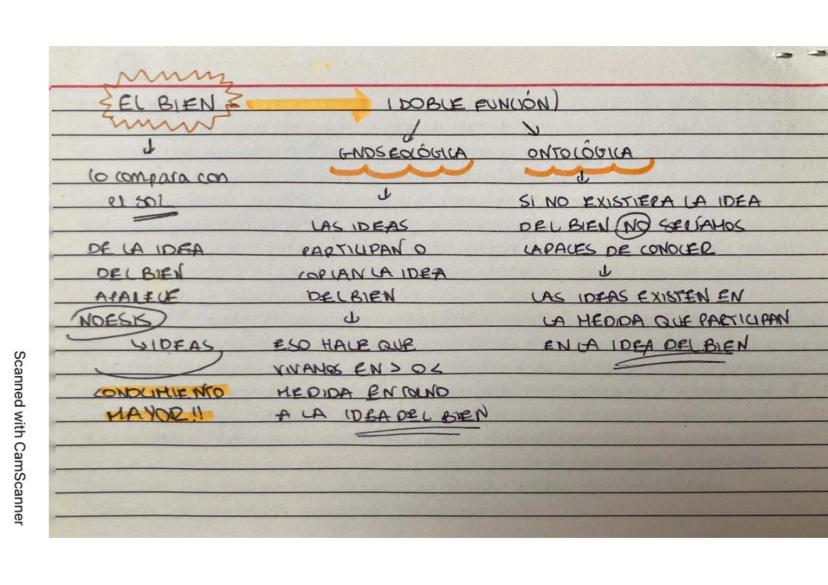 EL BIEN → (DOBLE FUNCIÓN)
↓
lo compara con
el SOL
DE LA IDEA
DEL BIEN
APARECE
NOESIS
↳ IDEAS
CONOCIMIENTO
MAYOR!!
GNOSEOLÓGICA
↓
LAS IDEAS
PARTICIPAN O
COPIAN LA IDEA
DEL BIEN
↓
ESO HACE QUE
VIVAMOS EN > O <
MEDIDA EN TORNO
A LA IDEA DEL BIEN
ONTOLÓGICA
↓
SI NO EXISTIERA LA IDEA
DEL BIEN NO SERÍAMOS
CAPACES DE CONOCER
↓
LAS IDEAS EXISTEN EN
LA MEDIDA QUE PARTICIPAN
EN LA IDEA DEL BIEN
Scanned with CamScanner